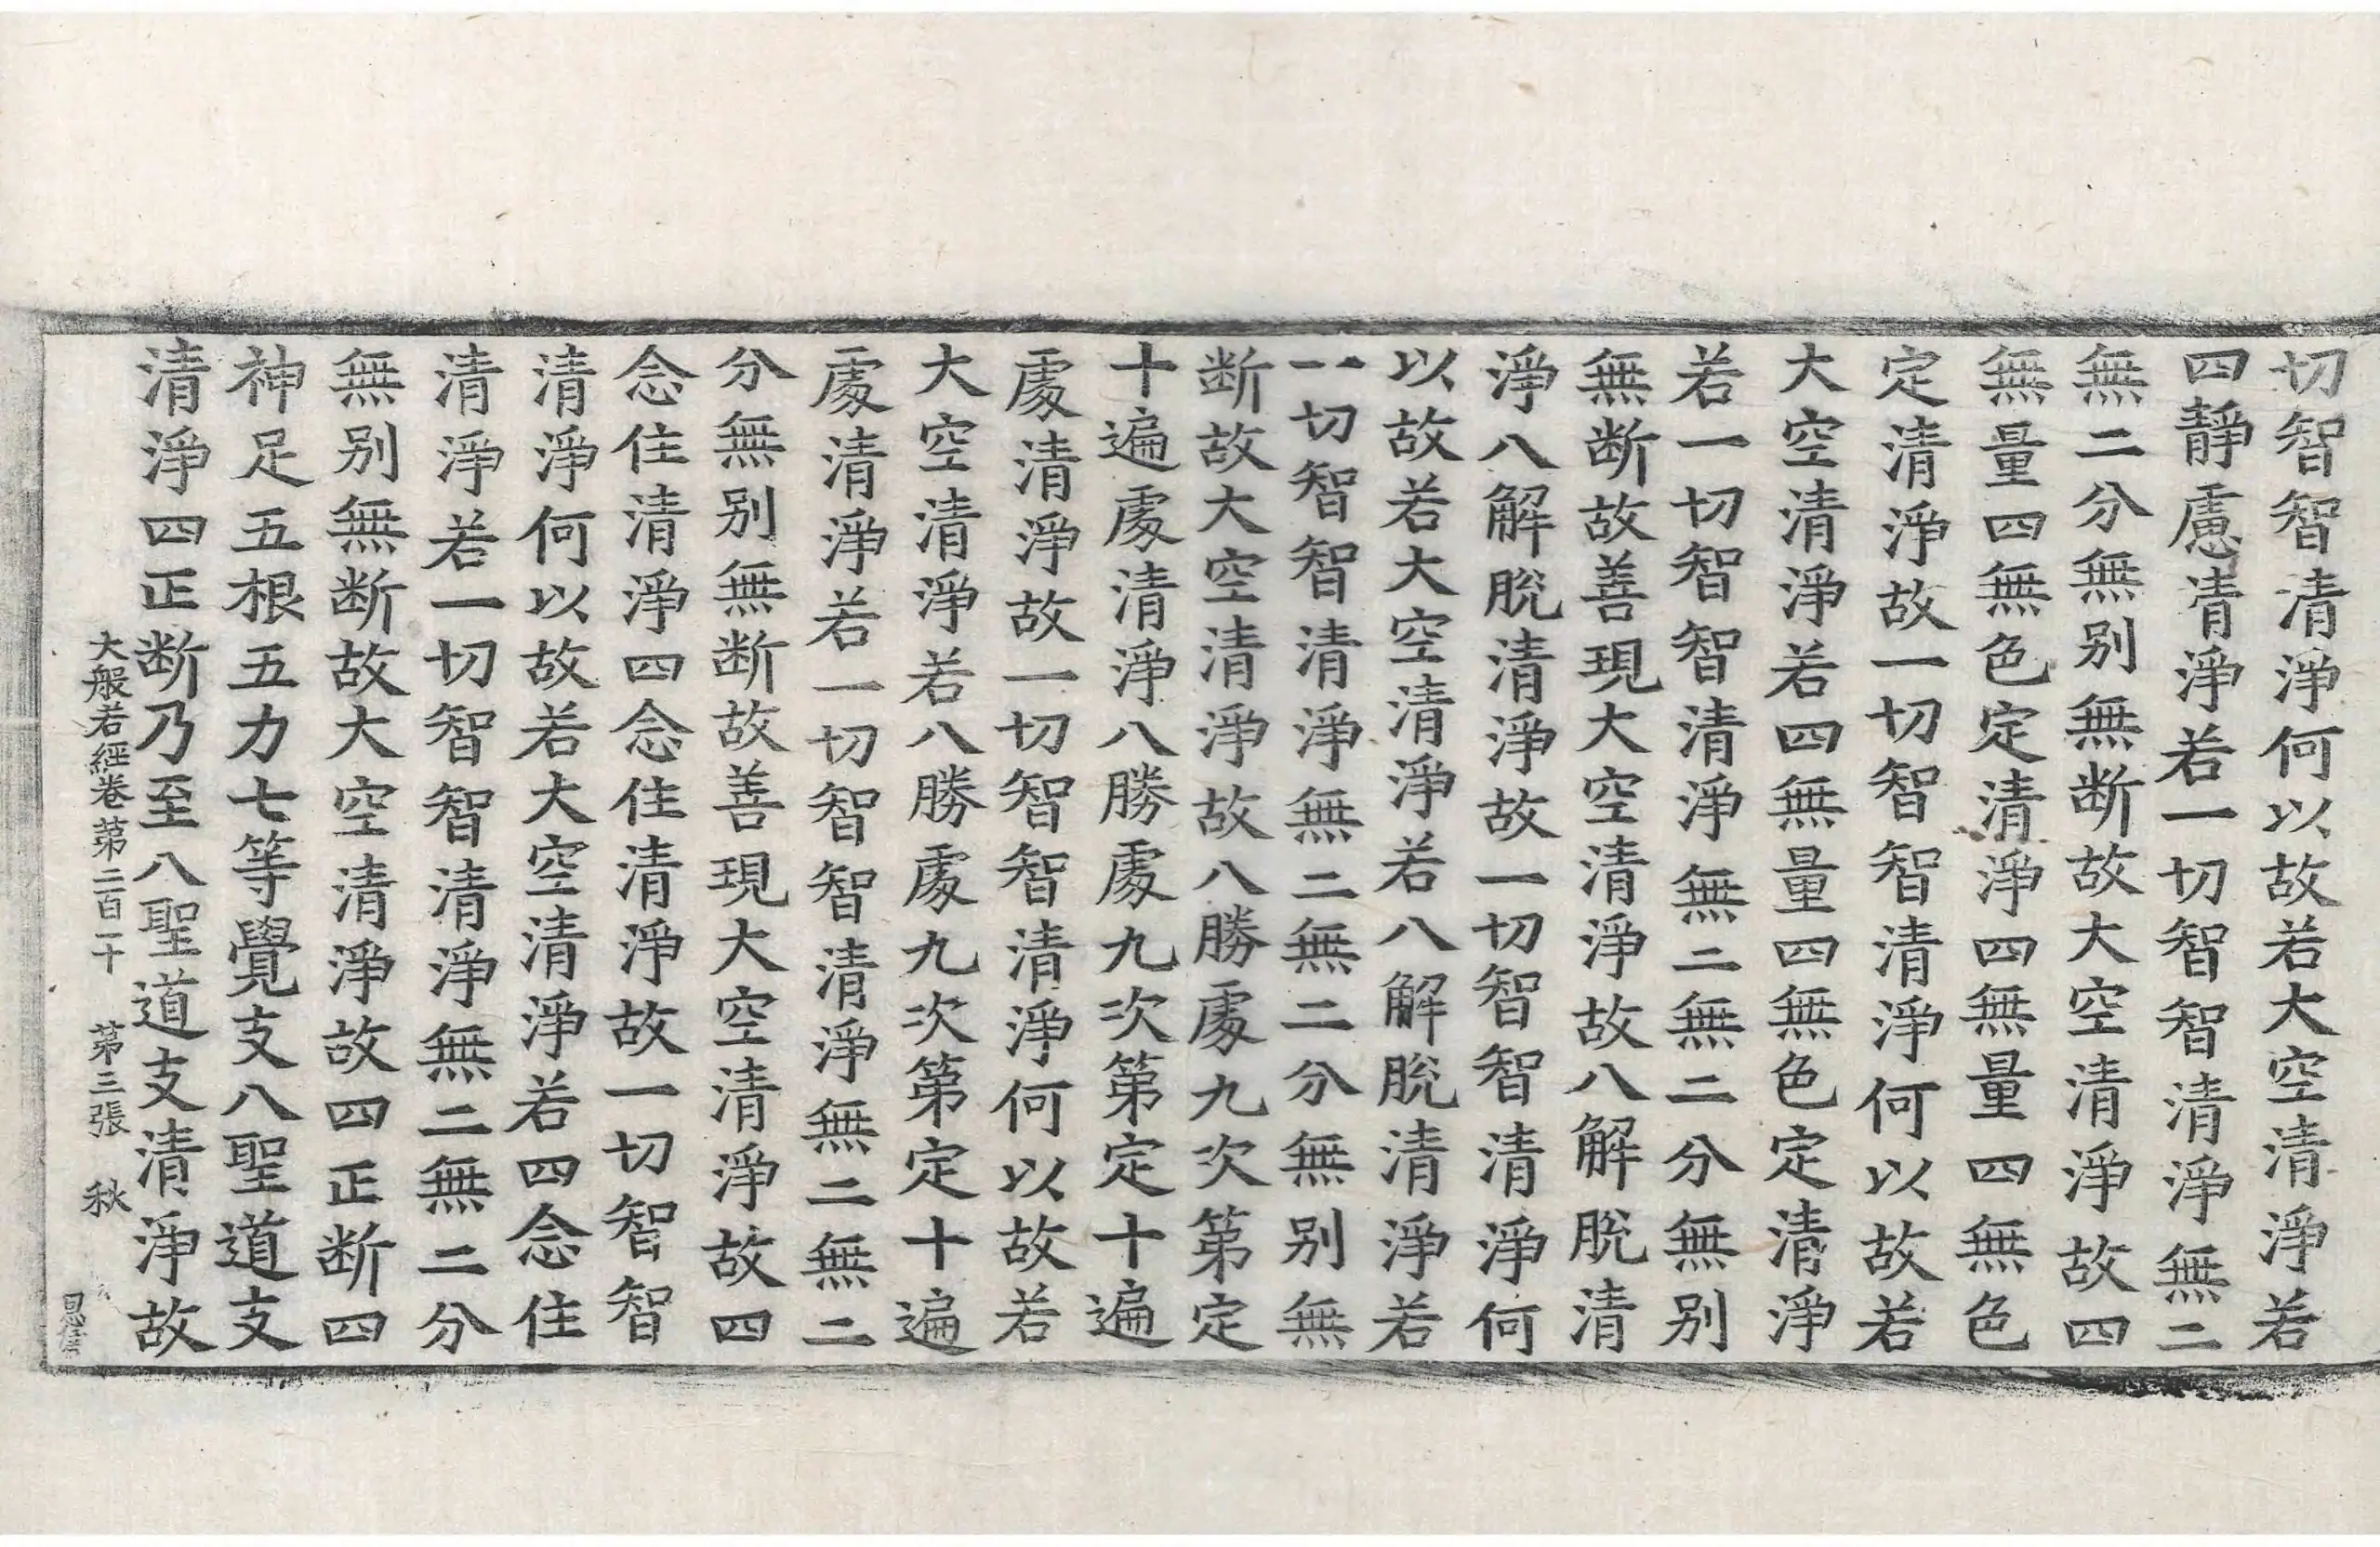 切智智清淨何以故若大空清淨若
四靜慮清淨若一切智智清淨無二
無二分無别無断故大空清淨故四
無量四無色定清淨四無量四無色
定清淨故一切智智清淨何以故若
大空清淨若四無量四無色定清淨
若一切智智清淨無二無二分無别
無断故善現大空清淨故八解脫清
淨八解脫清淨故一切智智清淨何
以故若大空清淨若八解脫清淨若
一切智智清淨無二無二分無别無
断故大空清淨故八勝處九次第定
十遍處清淨八勝處九次第定十遍
處清淨故一切智智清淨何以故若
大空清淨若八勝處九次第定十遍
處清淨若一切智智清淨無二無二
分無别無断故善現大空清淨故四
念住清淨四念住清淨故一切智智
清淨何以故若大空清淨若四念住
清淨若一切智智清淨無二無二分
無别無断故大空清淨故四正断四
神足五根五力七等覺支八聖道支
清淨四正断乃至八聖道支清淨故
大般若經卷第二百一十 第三張 秋